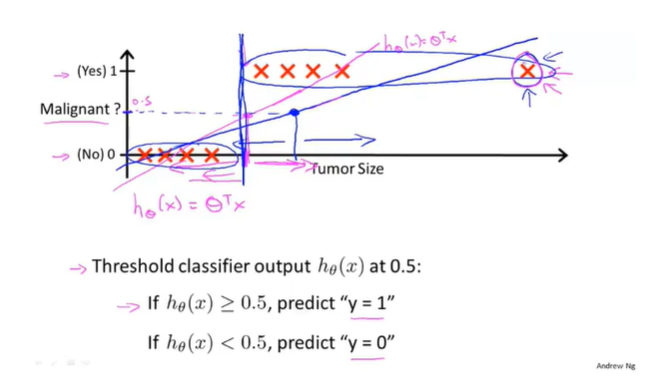 h_θ(x) = θ^T x
→ (Yes) 1
0.5
Malignant ?
→ (No) 0
Tumor Size
h_θ(x) = θ^T x
→ Threshold classifier output h_θ(x) at 0.5:
→ If h_θ(x) ≥ 0.5, predict “y = 1”
If h_θ(x) < 0.5, predict “y = 0”
Andrew Ng